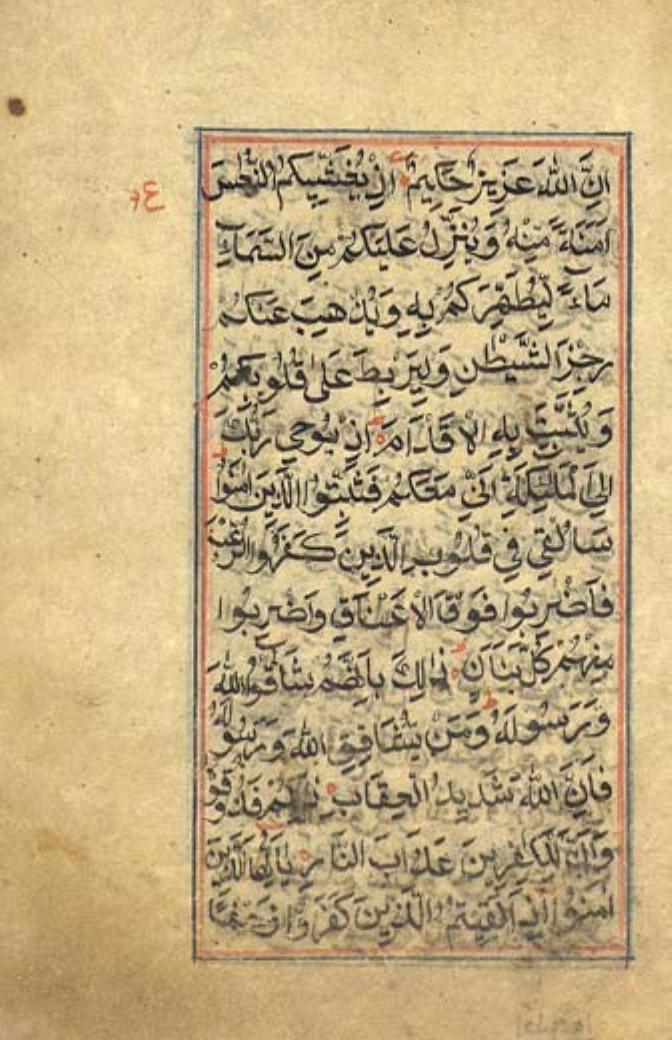 اِنَّ اللّٰهَ عَزِيزٌ حَكِيمٌ اِذْ يُغَشِّيكُمُ النُّعَاسَ
ع
اَمَنَةً مِّنْهُ وَيُنَزِّلُ عَلَيْكُمْ مِنَ السَّمَآءِ
مَآءً لِّيُطَهِّرَكُمْ بِهِ وَيُذْهِبَ عَنْكُمْ
رِجْزَ الشَّيْطٰنِ وَلِيَرْبِطَ عَلٰى قُلُوبِكُمْ
وَيُثَبِّتَ بِهِ الْاَقْدَامَ اِذْ يُوحِي رَبُّكَ
اِلَى الْمَلٰٓئِكَةِ اَنِّي مَعَكُمْ فَثَبِّتُوا الَّذِينَ اٰمَنُوا
سَاُلْقِي فِي قُلُوبِ الَّذِينَ كَفَرُوا الرُّعْبَ
فَاضْرِبُوا فَوْقَ الْاَعْنَاقِ وَاضْرِبُوا
مِنْهُمْ كُلَّ بَنَانٍ ذٰلِكَ بِاَنَّهُمْ شَآقُّوا اللّٰهَ
وَرَسُولَهُ وَمَنْ يُشَاقِقِ اللّٰهَ وَرَسُولَهُ
فَاِنَّ اللّٰهَ شَدِيدُ الْعِقَابِ ذٰلِكُمْ فَذُوقُوهُ
وَاَنَّ لِلْكٰفِرِينَ عَذَابَ النَّارِ يَآ اَيُّهَا الَّذِينَ
اٰمَنُوا اِذَا لَقِيتُمُ الَّذِينَ كَفَرُوا زَحْفًا